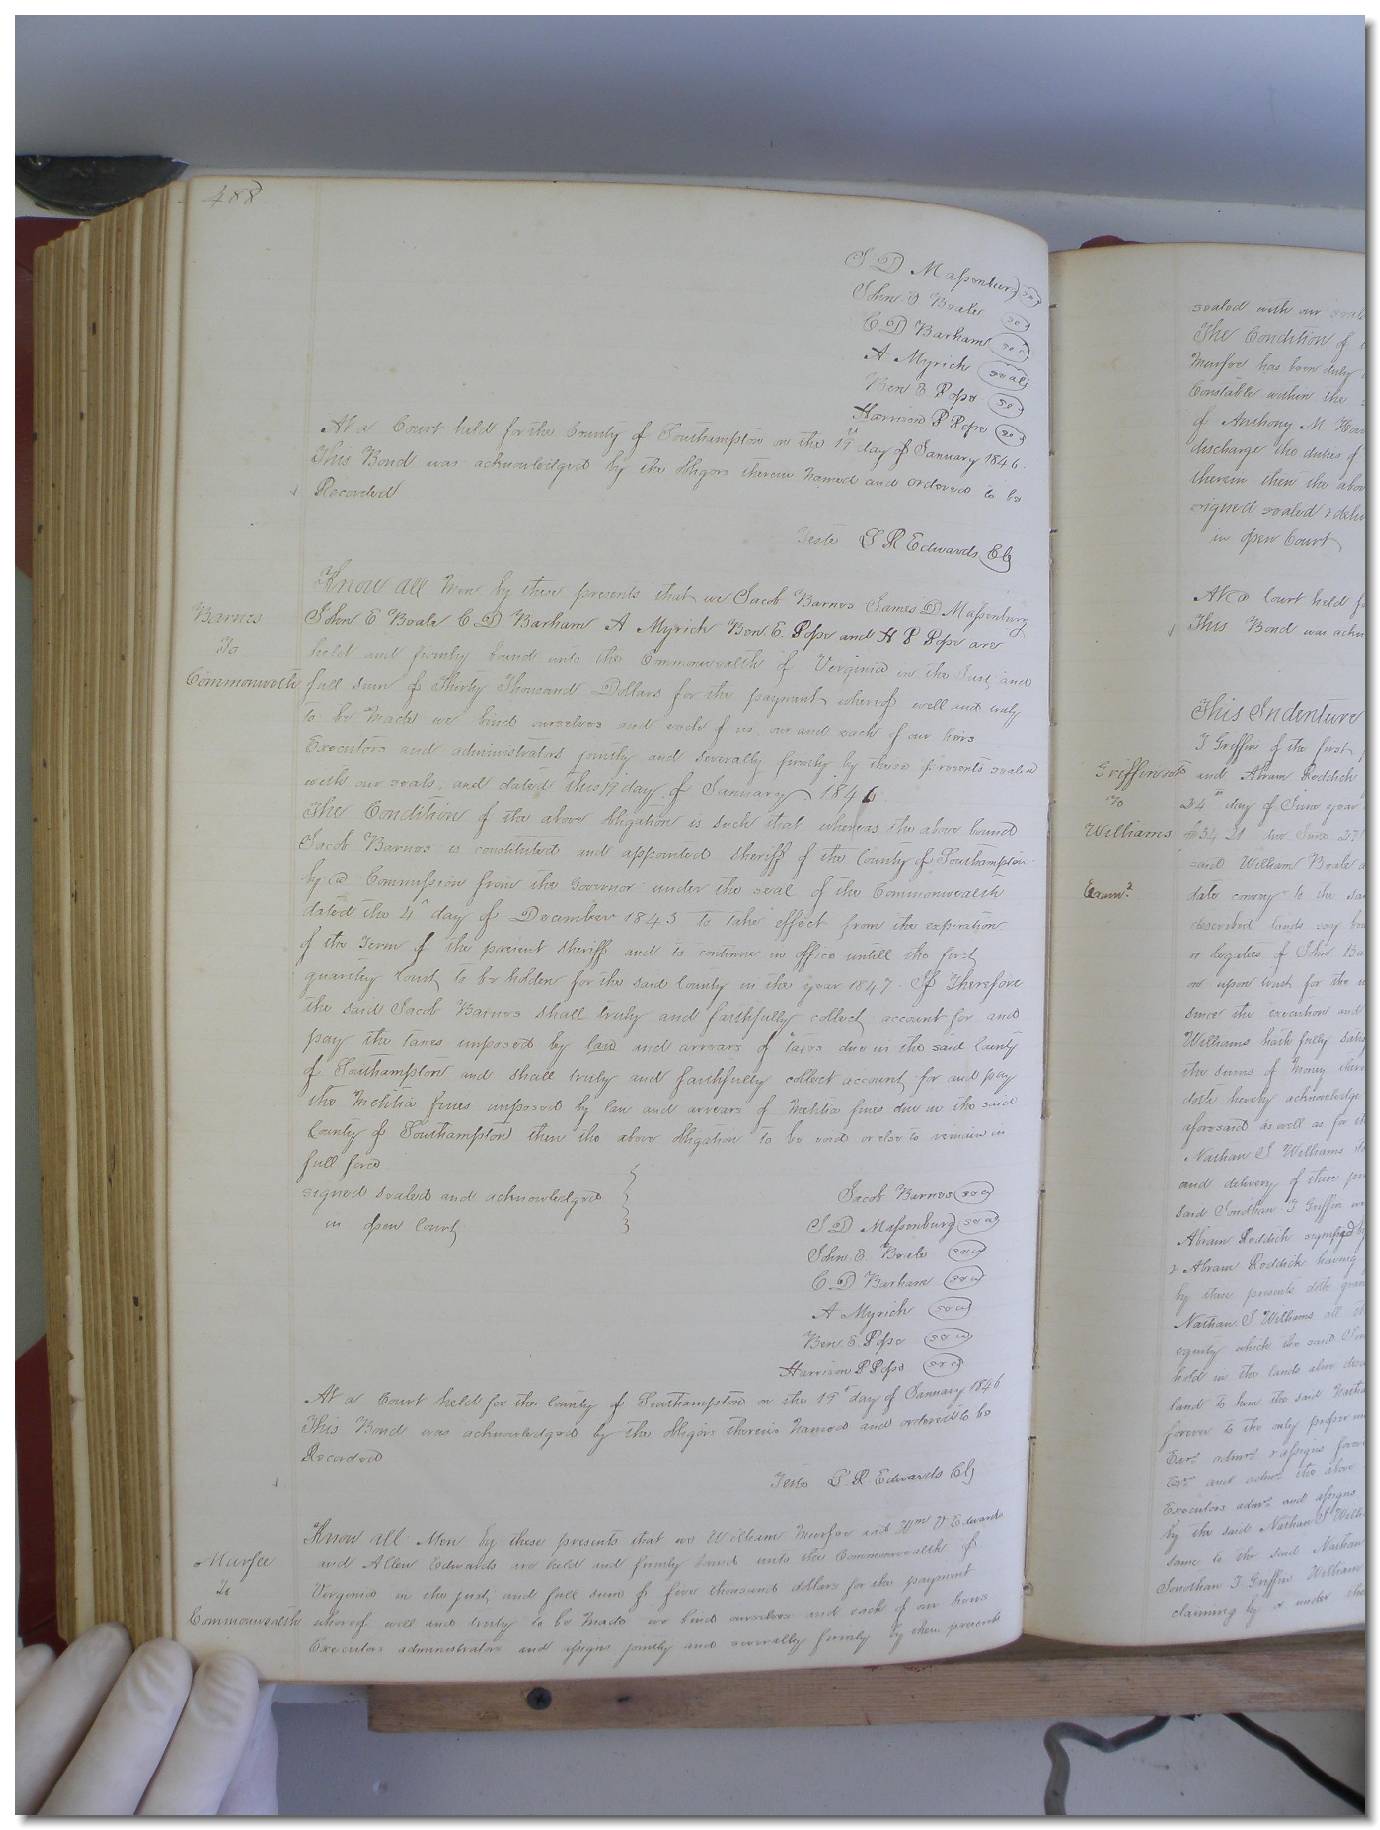 488
J D Massenburg seal
John E Beale seal
C D Barham seal
A Myrick seal
Ben E Pope seal
Harrison P Pope seal
At a Court held for the County of Southampton on the 19th day of January 1846.
This Bond was acknowledged by the obligors therein Named and ordered to be
Recorded
Teste L R Edwards Clk
Know all Men by these presents that we Jacob Barnes James D Massenburg
Barnes
To
Commonwelth
John E Beale C D Barham A Myrick Ben. E. Pope and H P Pope are
held and firmly bound unto the Commonwealth of Virginia in the Just and
full sum of Thirty Thousand Dollars for the payment whereof well and truly
to be Made we bind ourselves and each of us our and each of our heirs
Executors and administrators jointly and severally firmly by these presents sealed
with our seals. and dated this 19 day of January 1846
The Condition of the above obligation is such that whereas the above bound
Jacob Barnes is constituted and appointed Sheriff of the County of Southampton
by a Commission from the Governor under the seal of the Commonwealth
dated the 4th day of December 1843 to take effect from the expiration
of the Term of the present Sheriff and to continue in office untill the first
quartly Court to be holden for the said County in the year 1847. If Therefore
the said Jacob Barnes shall truly and faithfully collect account for and
pay the taxes imposed by law and arrears of taxes due in the said County
of Southampton and shall truly and faithfully collect account for and pay
the Melitia fines imposed by law and arrears of Melitia fines due in the said
County of Southampton then the above obligation to be void or else to remain in
full force
signed sealed and acknowledged
in open Court
Jacob Barnes seal
J D Massenburg seal
John. E. Beale seal
C. D Barham seal
A Myrick seal
Ben. E. Pope seal
Harrison P Pope seal
At a Court held for the County of Southampton on the 19th day of January 1846
This Bond was acknowledged by the obligors therein Named and ordered to be
Recorded
Teste L R Edwards Clk
Murfee
To
Commonwealth
Know all Men by these presents that we William Murfee and Wm Edwards
and Allen Edwards are held and firmly bound unto the Commonwealth of
Virginia in the just and full sum of five thousand dollars for the payment
whereof well and truly to be Made we bind ourselves and each of our heirs
Executors administrators and assigns jointly and severally firmly by these presents
sealed with our seals
The Condition of
Murfee has been duly
Constable within the
of Anthony M
discharge the duties of
therein then the abov
signed sealed & deliv
in open Court
At a Court held f
This Bond was ackn
This Indenture
J Griffin of the first
Griffin
To
Williams
Exam
and Abram Reddick
24th day of June year
said William Beale
date convey to the sa
described lands say
or legatee of John
or upon trust for the
since the execution and
Williams hath fully satis
the sums of Money ther
doth hereby acknowledge
aforesaid as well as for
Nathan J Williams
and delivery of these pre
said Jonathan J Griffin
Abram Reddick
& Abram Reddick having
by these presents doth gran
Nathan J Williams all
equity which the said
hold in the lands above
land to him the said Nath
forever to the only proper
Exrs admrs & assigns forev
and the above
Executors admrs and assigns
by the said Nathan J Willi
same to the said Nathan
Jonathan J Griffin William
claiming by or under